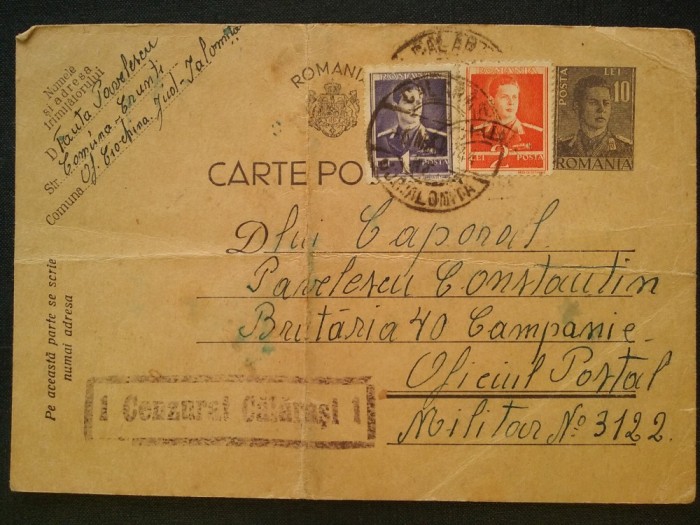 Numele
și adresa
trimițătorului
D Pauta Pavelescu
Str. Comuna Crunți
Comuna Of. Ciochina. Jud. Ialomița
ROMANIA
CARTE PO
POSTA LEI 10
ROMANIA
LEI POSTA
2 LEI POSTA
IALOMIȚA
Dlui Caporal
Pavelescu Constantin
Brutăria 40 Campanie
Oficiul Postal
Militar No 3122.
Pe această parte se scrie
numai adresa
Cenzurat Călărași 1